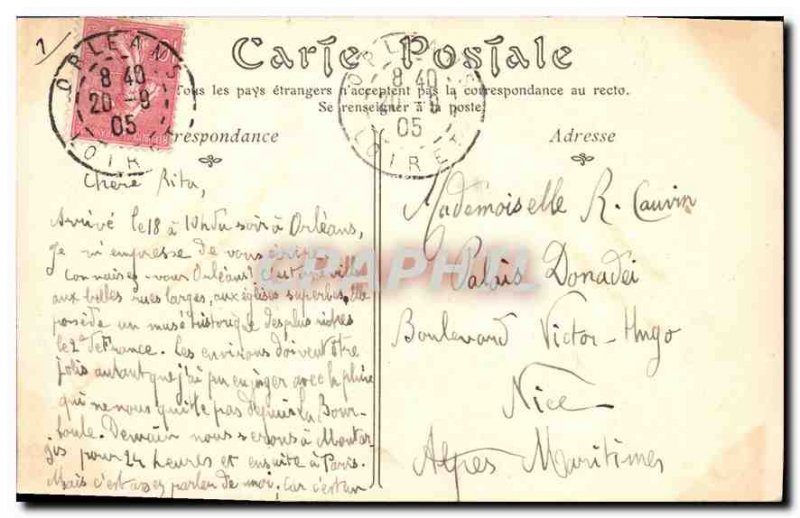 1
Carte Postale
ORLEANS
8 40
20 - 9
05
LOIRET
ORLEANS
8 40
20 - 9
05
LOIRET
Tous les pays étrangers n'acceptent pas la correspondance au recto.
Se renseigner à la poste.
respondance
Adresse
Chère Rita,
Arrivé le 18 à 10h du soir à Orléans,
je m'empresse de vous écrire.
Connaissez-vous Orléans? C'est une ville
aux belles rues larges, aux églises superbes, elle
possède un musé historique des plus riches
le 2e de France. Les environs doivent être
jolis autant que j'ai pu en juger avec la pluie
qui ne nous quitte pas depuis la Bour-
boule. Demain nous serons à Montar-
gis pour 24 heures et ensuite à Paris.
Mais c'est assez parler de moi, car c'est un
Mademoiselle R. Cauvin
Palais Donadéi
Boulevard Victor-Hugo
Nice
Alpes Maritimes
CPAPHIL